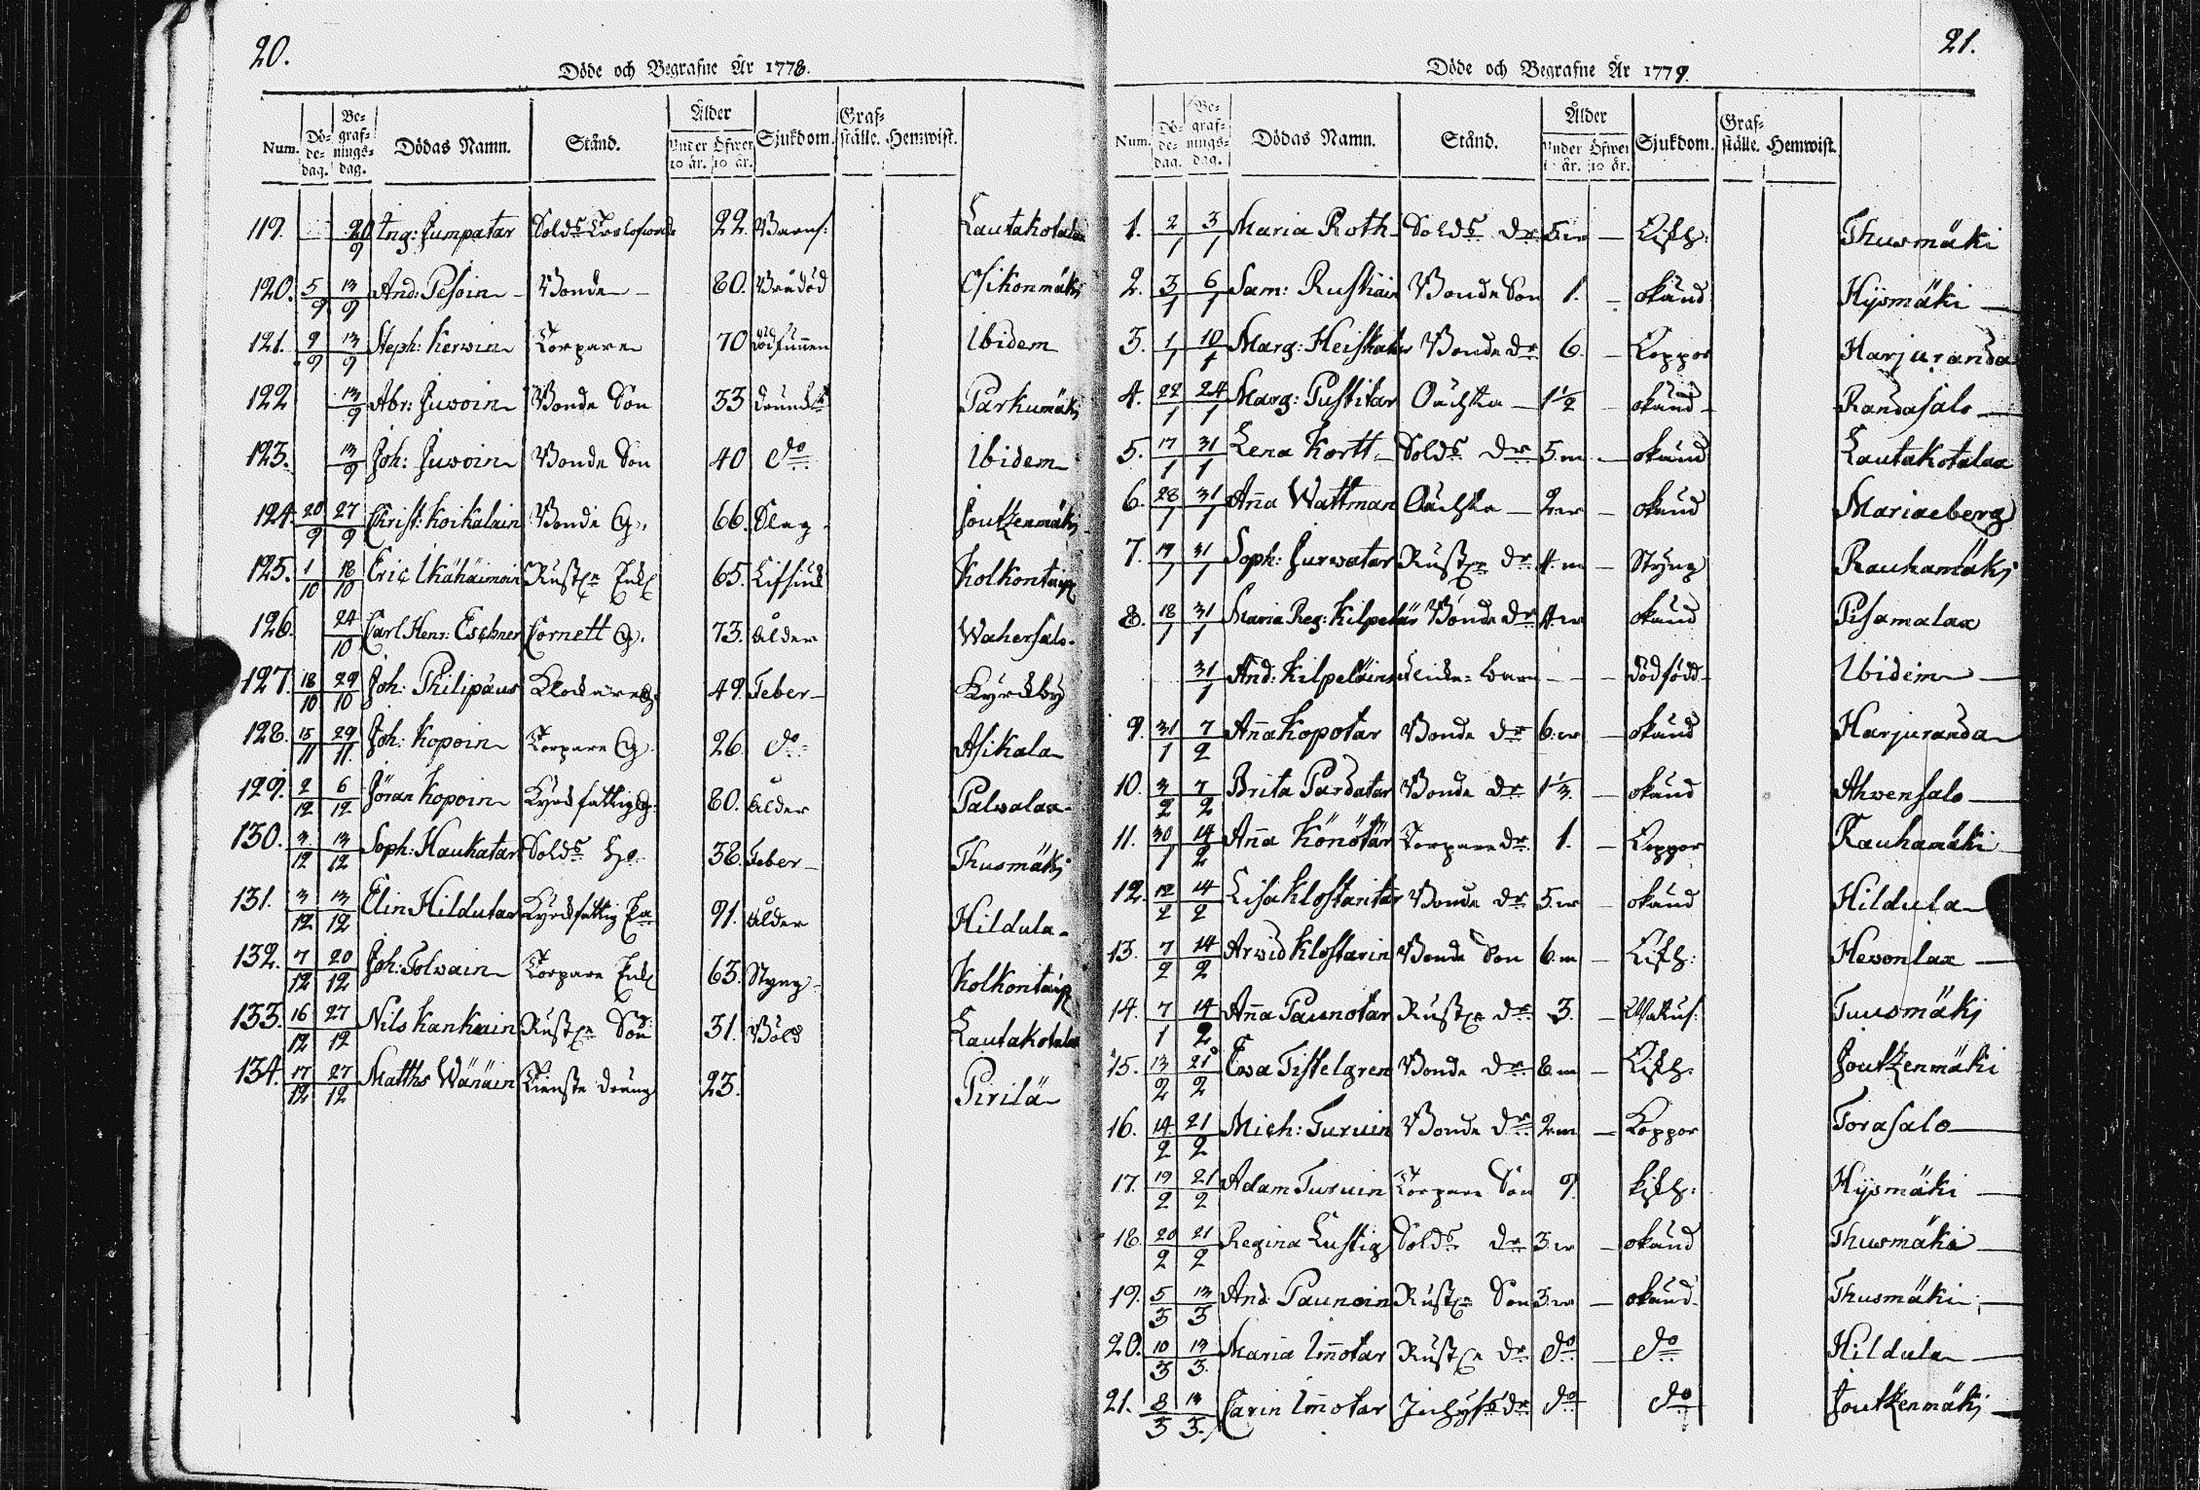 20.
Döde och Begrafne År 1778.
Num. Dö-de-dag. Be-graf-nings-dag. Dödas Namn. Stånd. Ålder Under 10 år. Öfwer 10 år. Sjukdom. Graf-ställe. Hemwist.
119. 20/9 Ing: Jumpatar Solds 22. Barns: Lautakotalax
120. 5/9 13/9 And: Pesoin Bonde 80. Brådöd
121. 9/9 13/9 Steph: Kerwin Torpare 70 Ibidem
122 13/9 Abr: Juvoin Bonde Son 33 Parkumäki
123. 13/9 Joh: Juvoin Bonde Son 40 do Ibidem
124. 20/9 27/9 Christ: Koikalain Bonde G. 66. Slag Joutzenmäki
125. 1/10 18/10 Eric Ikähäimoin Rustn Enkl 65. Lifsiuk Kolkontaip
126. 24/10 Carl Henr: Eschner Cornett G. 73. Ålder Wahersalo.
127. 18/10 29/10 Joh: Philipæus Klockare G 49. Feber Kyrckby
128. 15/11 29/11 Joh: Kopoin Torpare G 26. do Asikala
129. 2/12 6/12 Jöran Kopoin Kyrkfattig G. 80. Ålder Palwalax
130. 3/12 13/12 Soph: Haukatar Solds H: 38. Feber Thusmäki
131. 3/12 13/12 Elin Hildutar Kyrckfattig Ea 91. Ålder Hildula
132. 7/12 20/12 Joh: Tolvain Torpare Enkl 63. Styng Kolkontaip
133. 16/12 27/12 Nils Kankain Rustn Son 31. Böld Lautakotalax
134. 17/12 27/12 Matths Wänäin Tienste dräng 23. Pirilä
21.
Döde och Begrafne År 1779.
Num. Dö-de-dag. Be-graf-nings-dag. Dödas Namn. Stånd. Ålder Under 10 år. Öfwer 10 år. Sjukdom. Graf-ställe. Hemwist.
1. 2/1 3/1 Maria Roth Solds dr 5.w Kikh: Thusmäki
2. 3/1 6/1 Sam: Ruskiäin Bonde Son 1. okänd Hysmäki
3. 1/1 10/1 Marg: Heiskatar Bonde dr 6. Koppor Harjuranda
4. 22/1 24/1 Marg: Pustitar Oächta 1 1/2 okänd Randasalo
5. 17/1 31/1 Lena Kortt Solds dr 5.m okänd Lautakotalax
6. 28/1 31/1 Aña Wattman Oächta 2.w okänd Mariaeberg
7. 19/1 31/1 Soph: Jurvatar Rustn dr 4.m Styng Rauhamäki
8. 18/1 31/1 Maria Reg: Kilpelär Bonde dr 4.w okänd Pisamalax
31/1 And: Kilpeläins barn dödfödd Ibidem
9. 31/1 7/2 Aña Kopotar Bonde dr 6.w okänd Harjuranda
10. 3/2 7/2 Brita Pardatar Bonde dr 1 1/3. okänd Ahvensalo
11. 30/1 14/2 Aña Könötär Torpare dr. 1. Koppor Rauhamäki
12. 12/2 14/2 Lisa Klostaritar Bonde dr 5.w okänd Hildula
13. 7/2 14/2 Arvid Klostarin Bonde Son 6.m Kikh: Hevonlax
14. 7/1 14/2 Aña Paunotar Rustn dr 3. Tuusmäki
15. 13/2 21/2 Ewa Tistelgren Bonde dr 8.m Kikh: Joutzenmäki
16. 14/2 21/2 Mich: Turuin Bonde dr 2.m Koppor Torasalo
17. 19/2 21/2 Adam Turuin Torpare Son 9. Kikh: Hysmäki
18 20/2 21/2 Regina Lustig Solds dr 3.w okänd Thusmäki
19. 5/3 13/3 And: Paunoin Rustn Son 3.w okänd Thusmäki
20. 10/3 13/3 Maria Imotar Rustn dr do do Hildula
21. 8/3 13/3. Carin Imotar dr do do Joutzenmäki